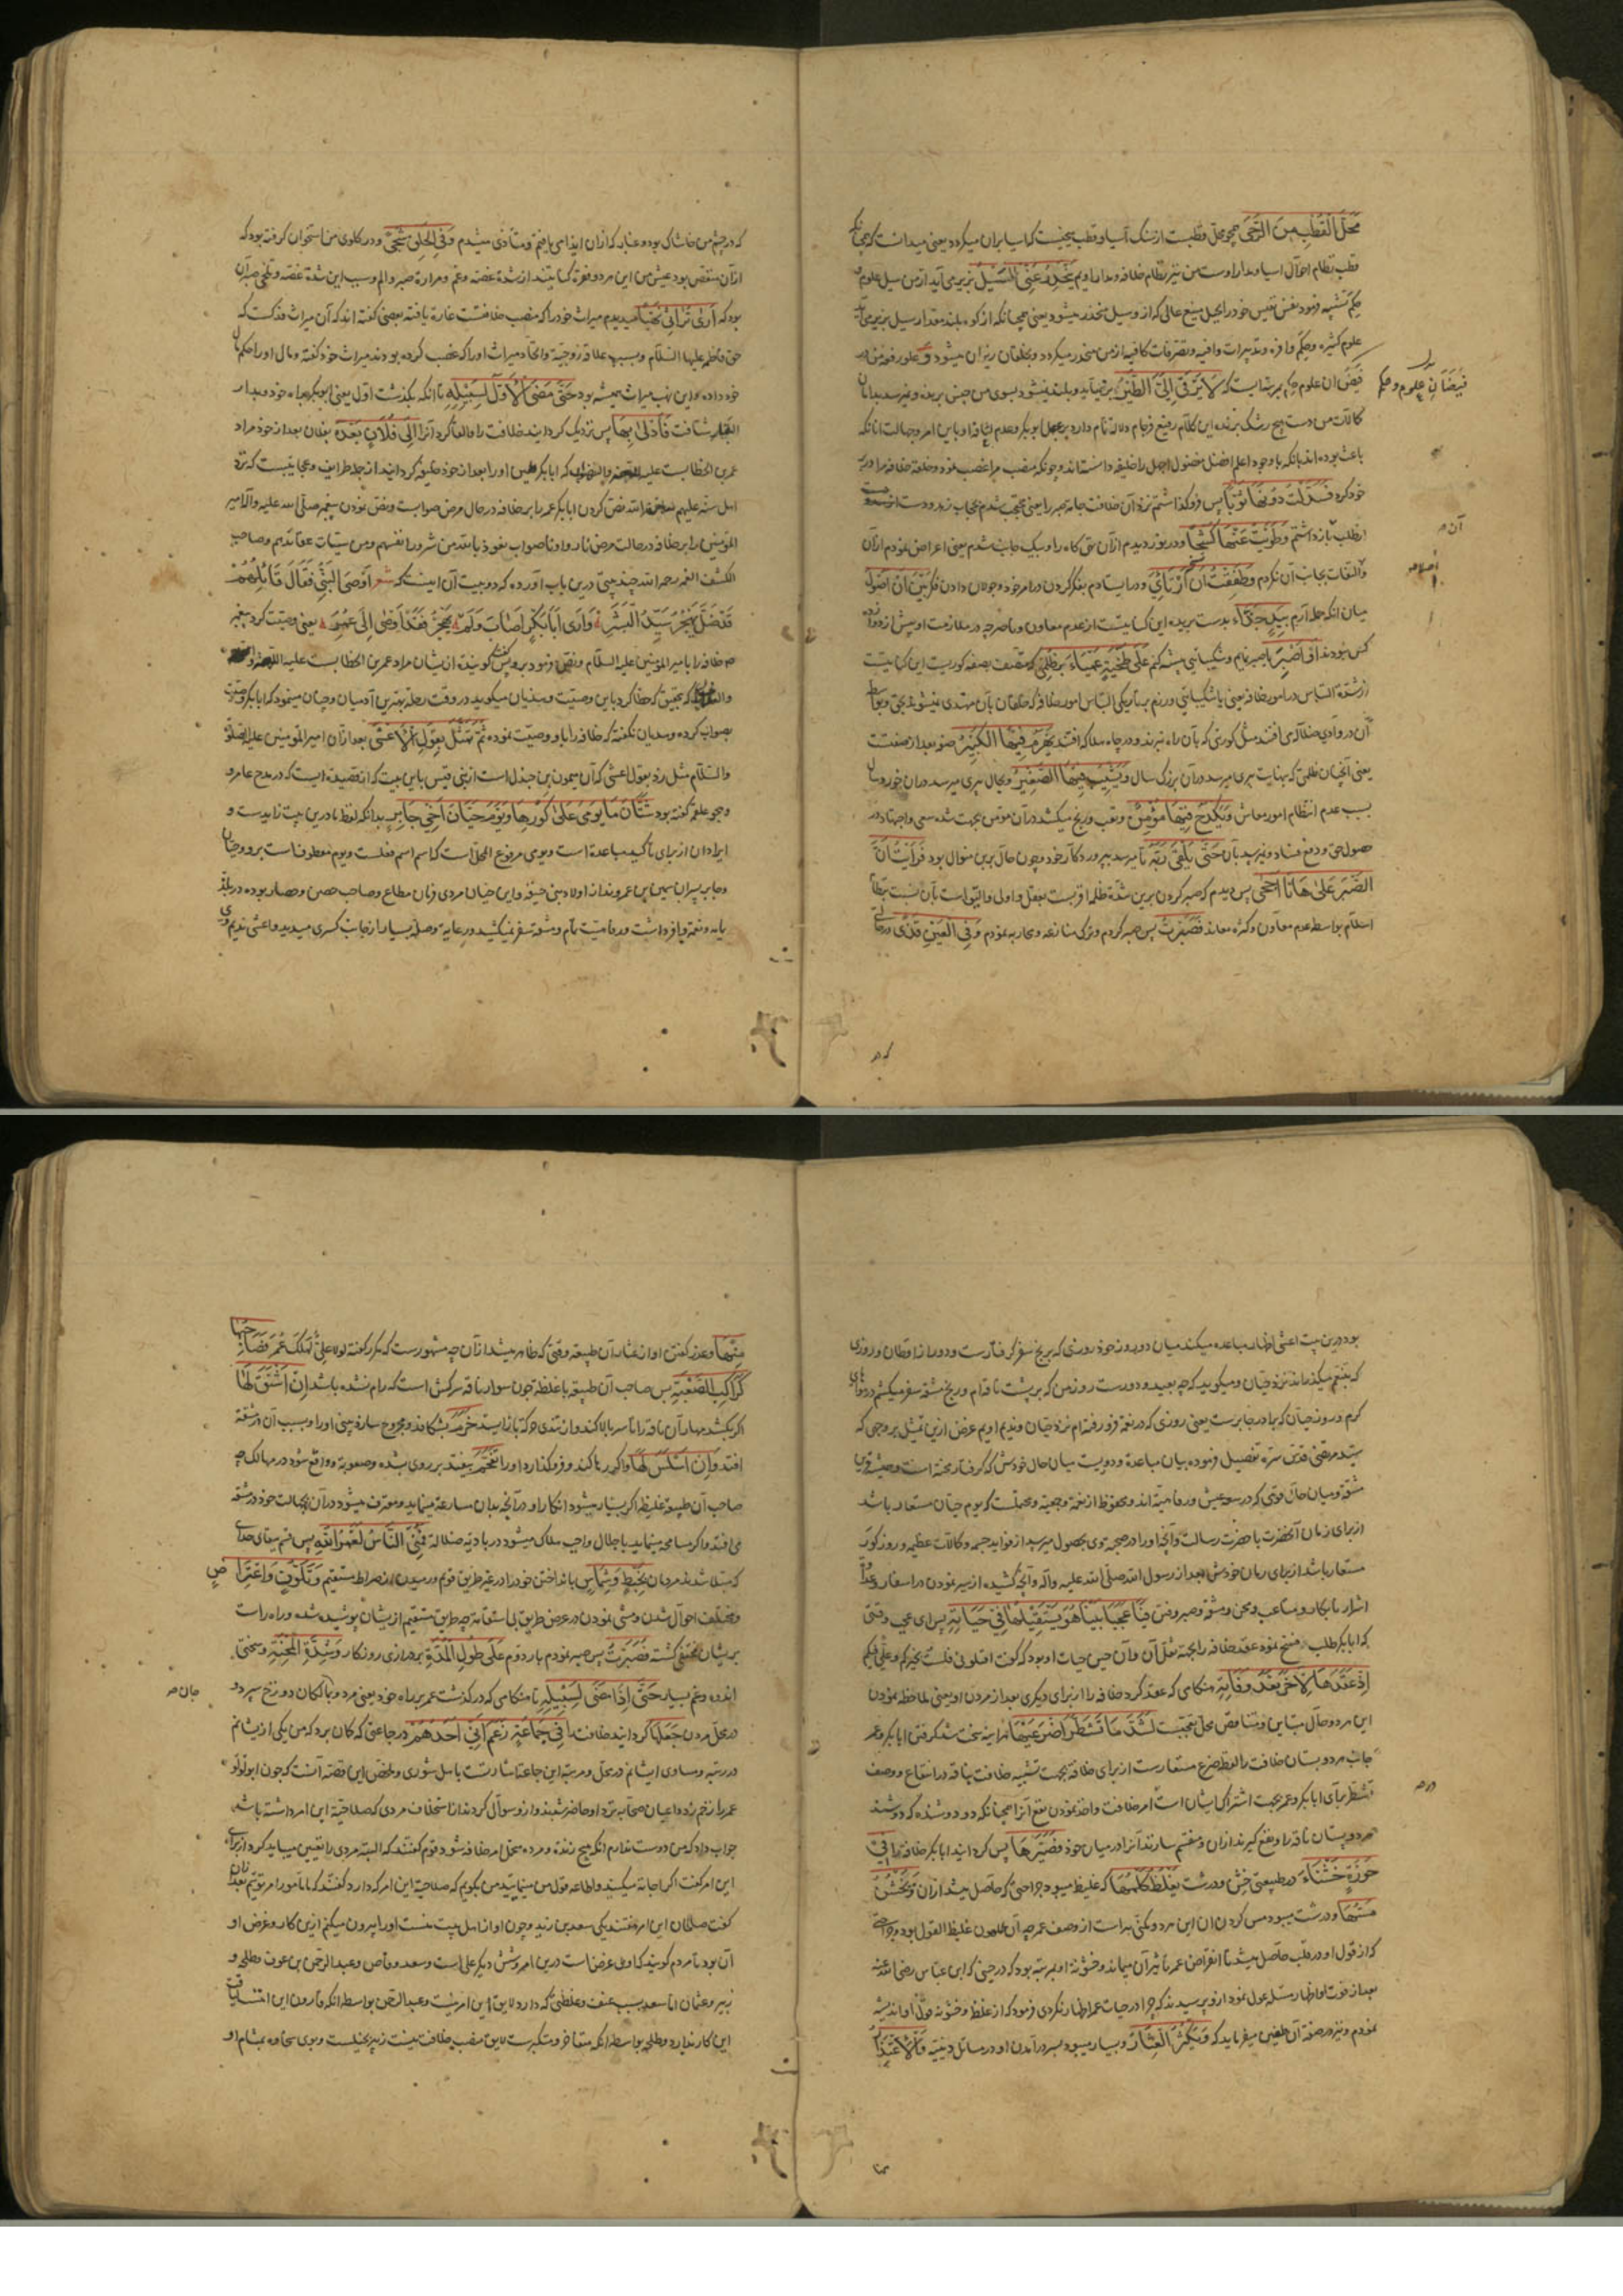 مَحَلَّ الْقُطْبِ مِنَ الرَّحَى همچو محل قطبست از سنک آسیا و قطب میخیست که آسیا بران میکردد یعنی میدانست که چنانکه
قطب نظام احوال آسیا و مدار اوست من نیز نظام خلافه و مدار اویم یَنْحَدِرُ عَنِّی السَّیْلُ بزیر می آید از من سیل علوم و
حکم تشبیه فرمود نفس نفیس خود را بجبل منیع عالی که از و سیل منحدر میشود یعنی همچنانکه از کوه بلند مقدار سیل بزیر می آید
علوم کثیره و حکم وافره و تدبیرات وافیه و تصرفات کافیه از من منحدر میکردد و بخلقان ریزان میشود و علو رفعت من در
فیضان علوم و حکم
فیض ان علوم و حکم بمرتبه ایست که لا یَرْقَی اِلَیَّ الطَّیْرُ بر نمی آید و بلند نمیشود بسوی من جنس پرنده و نمیرسد بدان
کمالات من دست هیچ رشک برنده این کلام رفیع فرجام دلالة تمام دارد بر جهل ابوبکر و عدم لیاقة او باین امر و جهالت انانکه
باعث بوده اند بانکه با وجود اعلم افضل مفضول اجهل را خلیفه دانسته اند و چونکه منصب مرا غصب نمود و خلعة خلافه مرا در بر
خود کرد فَسَدَلْتُ دُونَهَا ثَوْبًا پس فرو کذاشتم نزد آن خلافت جامه صبر را یعنی محتجب شدم بحجاب زهد و دست از
طلب باز داشتم وَ طَوَیْتُ عَنْهَا کَشْحًا و در نوردیدم از آن تهی کاه را و بیک جانب شدم یعنی اعراض نمودم از آن
والتفات بجانب آن نکردم وَ طَفِقْتُ اَرْتَأِی و در ایستادم بفکر کردن در امر خود و جولان دادن فکر بَیْنَ اَنْ اَصُولَ
میان انکه حمله آرم بِیَدٍ جَذَّاءَ بدست بریده این کنایتست از عدم معاون و ناصر چه در ملازمت او بیش از دوازده
کس نبودند اَوْ اَصْبِرَ یا صبر نمایم و شکیبائی پیشه کنم عَلَی طَخْیَةٍ عَمْیَاءَ بر ظلمتی که متصف بصفه کوریست این کنایتست
از شدة التباس در امور خلافه یعنی یا شکیبائی ورزم بر تاریکی التباس امور خلافه که خلقان بآن مهتدی نمیشوند بحق و بواسطه
آن در وادی ضلاله می افتند مثل کوری که بآن راه نبرند و در چاه هلاک افتد یَهْرَمُ فِیهَا الْکَبِیرُ صفة بعد از صفتست
یعنی آنچنان ظلمتی که بنهایت پیری میرسد در آن بزرک سال وَ یَشِیبُ فِیهَا الصَّغِیرُ و بحال پیری میرسد در ان خورد سال
بسبب عدم انتظام امور معاش وَ یَکْدَحُ فِیهَا مُؤْمِنٌ و تعب و رنج میکشد در آن مؤمن بجهت شدة سعی و اجتهاد در
حصول حق و دفع فساد و نمیرسد بآن حَتَّی یَلْقَی رَبَّهُ تا میرسد بپروردکار خود و چون حال برین منوال بود فَرَأَیْتُ اَنَّ
الصَّبْرَ عَلَی هَاتَا اَحْجَی پس دیدم که صبر کردن برین شدة ظلماء اقربست بعقل و اولی والیق است بآن نسبت بنظام
اسلام بواسطه عدم معاون و کثرة معاند فَصَبَرْتُ پس صبر کردم و ترک منازعه و محاربه نمودم وَ فِی الْعَیْنِ قَذًی و در حالی
که در چشم من خاشاک بود و غبار که ازان ایذا می یافتم و متأذی میشدم وَ فِی الْحَلْقِ شَجًی و در کلوی من استخوان کرفته بود که
ازان منغص بود عیش من این هر دو فقره کنایتند از شدة غصه و غم و مرارة صبر و الم و سبب این شدة غصه و تلخی صبر آن
بود که اَرَی تُرَاثِی نَهْبًا میدیدم میراث خود را که منصب خلافتست غارة یافته بعضی کفته اند که آن میراث فدکست که
حق فاطمه علیها السلام و بسبب علاقه زوجیة و اتحاد میراث او را که غصب کرده بودند میراث خود کفته و مال او را حکم مال
خود داده و این نهب میراث همیشه بود حَتَّی مَضَی الْاَوَّلُ لِسَبِیلِهِ تا انکه بکذشت اول یعنی ابوبکر براه خود و بدار
البوار شتافت فَاَدْلَی بِهَا پس نزدیک کردانید خلافت را و القا کرد آنرا اِلَی فُلَانٍ بَعْدَهُ بفلان بعد از خود مراد
عمر بن الخطابست علیه که ابابکر لعین او را بعد از خود خلیفه کردانید از جمله طرایف و عجایبست که نزد
اهل سنه علیهم نص کردن ابابکر عمر را بر خلافه در حال مرض صوابست و نص نمودن پیغمبر صلی الله علیه و آله امیر
المؤمنین را بر خلافه در حالت مرض ناروا و ناصواب نعوذ بالله من شرور انفسهم و من سیئات عقائدهم و صاحب
الکشف الغمه رحمه الله چند بیتی درین باب آورده که دو بیت آن اینست که شعر اَوْصَی النَّبِیُّ فَقَالَ قَائِلُهُمْ
قَدْ ضَلَّ یَهْجُرُ سَیِّدُ الْبَشَرِ وَ اَرَی اَبَابَکْرٍ اَصَابَ وَلَمْ یَهْجُرْ فَقَدْ اَوْصَی اِلَی عُمَرَ یعنی وصیت کرد پیغمبر
م خلافه را بامیر المؤمنین علیه السلام و نص فرمود بر وی پس کفت کوینده از یشان مراد عمر بن الخطابست علیه
که بتحقیق که خطا کرد باین وصیت و هذیان میکوید در وقت رحلة بهترین آدمیان و چنان مینمود که ابابکر وصیت
بصواب کرده و هذیان نکفته که خلافه را باو وصیت نموده ثُمَّ تَمَثَّلَ بِقَوْلِ الْاَعْشَی بعد از آن امیر المؤمنین علیه الصلوة
والسلام مثل زد بقول اعشی که آن میمون بن جندل است از بنی قیس باین بیت که از قصیده ایست که در مدح عامر و
و هجو علقمه کفته بود شَتَّانَ مَا یَوْمِی عَلَی کُورِهَا وَ یَوْمُ حَیَّانَ اَخِی جَابِرٍ بدانکه لفظ ما درین بیت زایدست و
ایراد ان از برای تأکید مباعدة است و یومی مرفوع المحل است که اسم اسم فعلست و یوم معطوفست برو و حیان
و جابر پسران سمین بن عمرو بودند از اولاد بنی حنیفه و این حیان مردی فرمان مطاع و صاحب حصن و حصار بوده در بلدة
یمامه و نعمة وافره داشت و رفاهیت تام و مشقه سفر نمیکشید و رعایة و صله بسیار از جانب کسری میدید و اعشی ندیم وی
بود درین بیت اعشی اظهار مباعده میکند میان دو روز خود روزی که برنج سفر کرفتارست و دور از اوطان و روزی
که بتنعم میکذراند نزد حیان و میکوید که چه بعید و دورست روز من که بر پشت ناقه ام و رنج و مشقه سفر میکشم در هوای
کرم و روز حیان که برادر جابرست یعنی روزی که در نعمة فرو رفته ام نزد حیان و ندیم اویم غرض ازین تمثیل بر وجهی که
سید مرتضی قدس سره تفصیل فرموده بیان مباعدة و دوریست میان حال خودش که کرفتار محنة است و معیشة قرین
مشقة و میان حال قومی که در سعه عیش و رفاهیة اند و محفوظ از نعمة و جمعیة و محتملست که یوم حیان مستعار باشد
از برای زمان آنحضرت با حضرت رسالت و آنچه او را در صحبة وی بحصول میرسید از فواید جسمه و کمالات عظیمه و روز کور
مستعار باشد از برای زمان خودش بعد از رسول الله صلی الله علیه و آله و آنچه کشیده از سیر نمودن در اسفار و عداوة
اشرار نابکار و متاعب و محن و مشقه و صبر و فتن فَیَا عَجَبًا بَیْنَا هُوَ یَسْتَقِیلُهَا فِی حَیَاتِهِ پس ای عجب وقتی
که ابابکر طلب فسخ نمود عقد خلافه را بجهة ثقل آن و آن حین حیات او بود که کفت اقیلونی فلست بخیرکم و علی فیکم
اِذْ عَقَدَهَا لِآخَرَ بَعْدَ وَفَاتِهِ هنکامی که عقد کرد خلافه را از برای دیکری بعد از مردن او یعنی ملاحظه نمودن
این هر دو حال متباین و متناقض محل تعجبست لَشَدَّ مَا تَشَطَّرَا ضَرْعَیْهَا هر اینه سخت شد کرفتن ابابکر و عمر
جانب هر دو پستان خلافت را لفظ ضرع مستعارست از برای خلافه بجهت تشبیه خلافت بناقه در انتفاع و وصف
تشطر برای ابابکر و عمر بجهت اشتراک ایشان است امر خلافت و اخذ نمودن نفع آنرا همچنانکه دو دوشنده که دوشند
هر دو پستان ناقه را و نفع کیرند ازان و منقسم سازند آنرا در میان خود فَصَیَّرَهَا پس کردانید ابابکر خلافه را فِی
حَوْزَةٍ خَشْنَاءَ در طبیعتی خشن و درشت یَغْلُظُ کَلْمُهَا که غلیظ میبود جراحتی که حاصل میشد از ان وَ یَخْشُنُ
مَسُّهَا و درشت میبود مس کردن ان این هر دو کنایة است از وصف عمر چه آن ملعون غلیظ القول بود و جراحتی
که از قول او در قلب حاصل میشد تا انقراض عمر تاثیر آن میماند و خشونة او بمرتبه بود که در حینی که ابن عباس رضی الله عنه
بعد از فوت او اظهار مسئله عول نمود ازو پرسیدند که چرا در حیات عمر اظهار نکردی فرمود که از غلظ و خشونة قول او اندیشه
نمودم و نیز در صفة آن لعین میفرماید که وَ یَکْثُرُ الْعِثَارُ و بسیار میبود بسر درآمدن او در مسائل دینیه وَ الْاِعْتِذَارُ
مِنْهَا و عذر کفتن او از عثار آن طبیعه وقتی که ظاهر میشد از آن چه مشهورست که مکرر کفته لولا علی لهلک عمر فَصَاحِبُهَا
کَرَاکِبِ الصَّعْبَةِ پس صاحب آن طبیعه با غلظه چون سوار ناقه سرکش است که رام نشده باشد اِنْ اَشْنَقَ لَهَا
اکر بکشد مهار آن ناقه را تا سر بالا کند و از تندی حرکة باز ایستد خَرَمَ بشکافد و مجروح سازد بینی او را و بسبب آن در مشقة
افتد وَ اِنْ اَسْلَسَ لَهَا و اکر رها کند و فرو کذارد او را تَقَحَّمَ بیفتد بر روی بشدة و صعوبة و واقع شود در مهالک چه
صاحب آن طبیعه غلیظه اکر بسیار میشود انکار او در آنچه بدان مسارعة مینماید و معترف میشود در آن بجهالت خود در مشقه
می افتد و اکر مسامحه مینماید باخلال واجب هلاک میشود در بادیه ضلالة فَمُنِیَ النَّاسُ لَعَمْرُ اللَّهِ پس قسم ببقای خدای
که مبتلا شدند مردمان بِخَبْطٍ وَ شِمَاسٍ بانداختن خود را در غیر طریق قویم و رمیدن از صراط مستقیم وَ تَلَوُّنٍ وَ اعْتِرَاضٍ
و مختلف احوال شدن و مشی نمودن در عرض طریق بی استقامه چه طریق مستقیم از یشان پوشیده شده و راه راست
بریشان مختفی کشته فَصَبَرْتُ پس صبر نمودم بار دوم عَلَی طُولِ الْمُدَّةِ بر درازی روزکار وَ شِدَّةِ الْمِحْنَةِ و سختی
اندوه و غم بسیار حَتَّی اِذَا مَضَی لِسَبِیلِهِ تا هنکامی که در کذشت عمر براه خود یعنی مرد و بمالکان دوزخ سپرد
جان
در محل مردن جَعَلَهَا کردانید خلافت را فِی جَمَاعَةٍ زَعَمَ اَنِّی اَحَدُهُمْ در جماعتی که کمان برد که من یکی از یشانم
در رتبه و مساوی ایشانم در محل و مرتبه این جماعة اشارتست باهل شوری و ملخص این قصه آنست که چون ابولؤلؤ
عمر را زخم زد و اعیان صحابه نزد او حاضر شدند و از و سوال کردند از استخلاف مردی که صلاحیة این امر داشته باشد
جواب داد که من دوست ندارم انکه هیچ زنده و مرده متحمل امر خلافه شود قوم کفتند که البته مردی را تعیین میباید کرد از برای
این امر کفت اکر اجابة میکنید و اطاعه قول من مینمایید من میکویم که صلاحیة این امر که دارد کفتند که ما مأمور امر توییم بعد از ان
کفت صالحان این امر هفتند یکی سعد بن زید و چون او از اهل بیت منست او را بیرون میکنم ازین کار و غرض او
آن بود تا مردم کویند که او بی غرض است درین امر و شش دیکر علی است و سعد وقاص و عبد الرحمن بن عوف و طلحه و
زبیر و عثمان اما سعد بسبب عنف و غلظتی که دارد لایق این امر نیست و عبد الرحمن بواسطه انکه قارون این امتست لیاقت
این کار ندارد و طلحه بواسطه انکه متفاخر و متکبرست لایق منصب خلافت نیست زبیر بخیلست و بوی سخاوه بمشام او